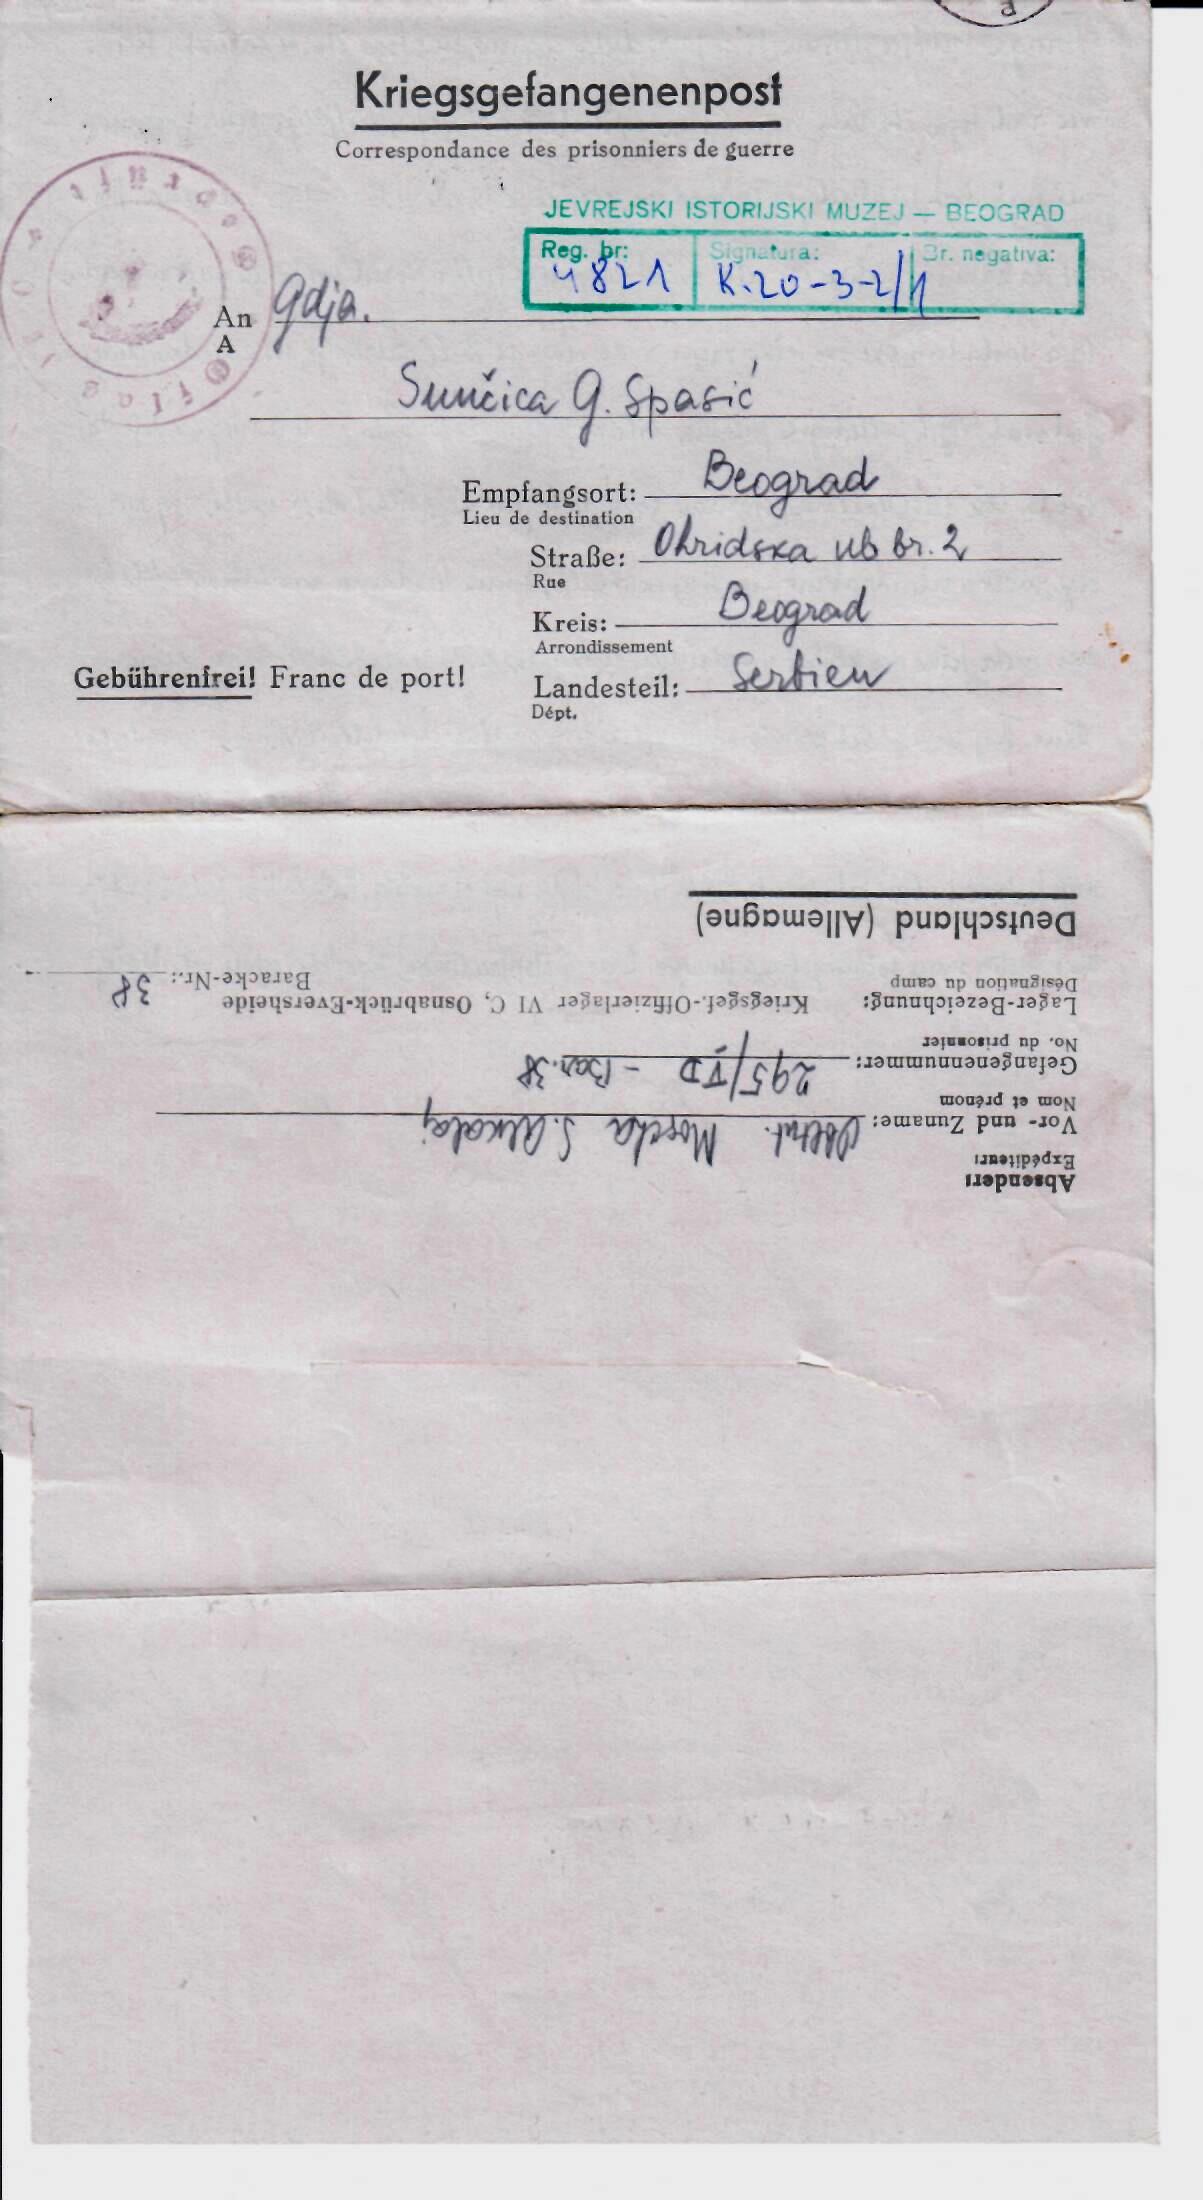 Kriegsgefangenenpost
Correspondance des prisonniers de guerre
JEVREJSKI ISTORIJSKI MUZEJ — BEOGRAD
Reg. br: Signatura: Br. negativa:
4821 K.20-3-2/1
An Gdja.
A
Sunčica G. Spasić
Empfangsort: Beograd
Lieu de destination
Straße: Ohridska ul. br. 2
Rue
Kreis: Beograd
Arrondissement
Gebührenfrei! Franc de port!
Landesteil: Serbien
Dépt.
Absender:
Expéditeur:
Vor- und Zuname: Moscha S. Alkalaj
Nom et prénom
Gefangenennummer: 295/VD – Bar. 38
No. du prisonnier
Lager-Bezeichnung: Kriegsgef.-Offizierlager VI C, Osnabrück-Eversheide
Désignation du camp
Baracke-Nr.: 38
Deutschland (Allemagne)